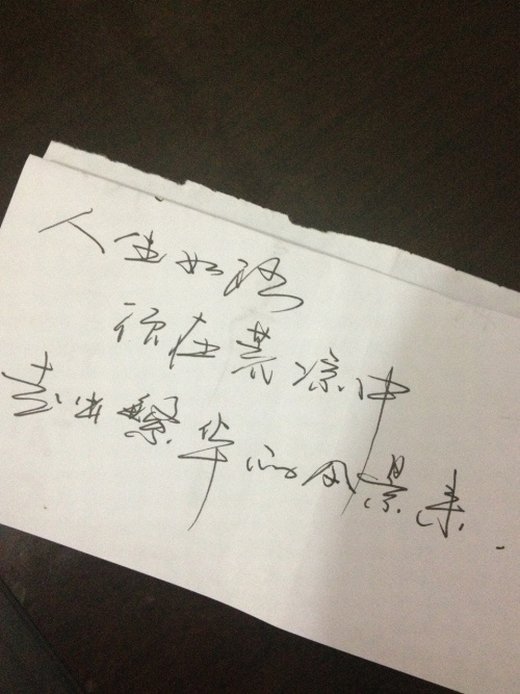 人生如路
须在荒凉中
走出繁华的风景来.